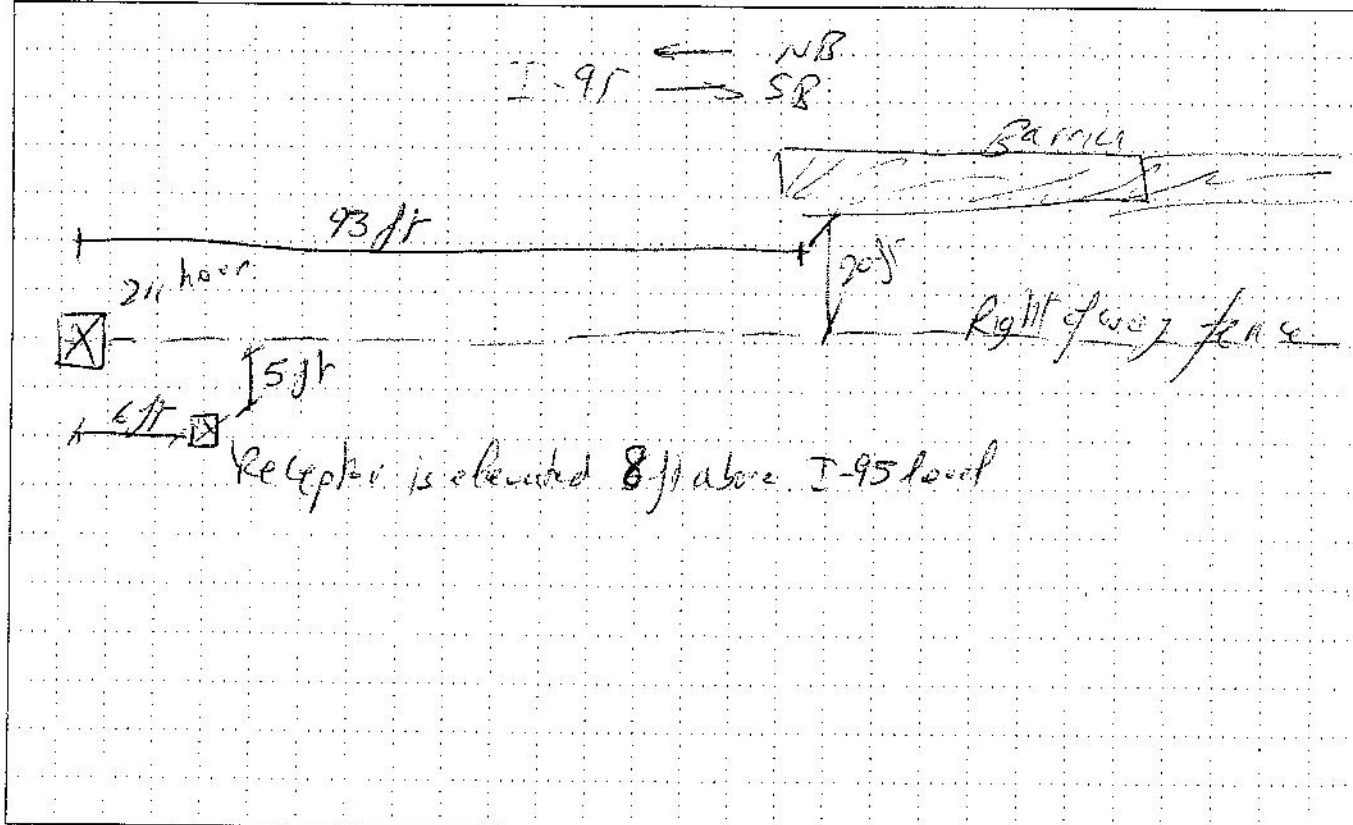 ← NB
I-95 → SB
Barrier
93 ft
20 ft
24 hour
Right of way fence
5 ft
6 ft
Receptor is elevated 8 ft above I-95 level